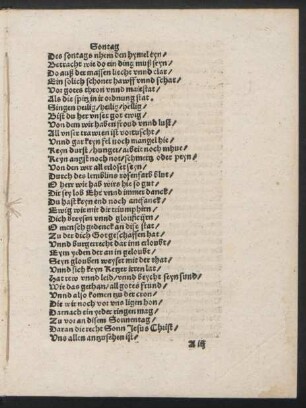 Sontag
Des sontags nhem den hymel eyn/
Betracht wie do ein ding muß seyn/
Do auß der massen liecht vnnd clar/
Ein solich schoner hawff vnnd schar/
Vor gotes thron vnnd maiestat/
Als die spitz in ir ordnung stat.
Singen heilig/heilig/heilig/
Bist du her vnser got ewig/
Von dem wir haben freud vnnd lust/
All vnser trawren ist vertuscht
Vnnd gar keyn fel noch mangel hie/
Keyn durst/hunger/arbeit noch mhue/
Keyn angst noch not/schmertz oder peyn/
Von den wir all erloset seyn/
Durch des lemblins rosenfarb blut/
O herr wie has wirs hie so gut/
Dir sey lob Ehr vnnd immer danck/
Du hast keyn end noch anefanck/
Ewig wir mit dir triumphirn/
Dich breysen vnnd glorifizirn/
O mensch gedenck an dise stat/
Zu der dich Got geschaffen hat/
Vnnd burgerrecht dar inn erloubt/
Eym yeden der an in geloubt/
Seyn glouben weyset mit der that/
Vnnd sich keyn Ketzer irren lat/
Hat rew vnnd leid/vnnd beycht seyn sund/
Wie das gethan/all gotes frund/
Vnnd also komen zu der cron/
Die wir noch vor vns ligen hon/
Darnach ein yeder ringen mag/
Zu vor an disem Sonnentag/
Daran die recht Sonn Jesus Christ/
Vns allen antzusehen ist/
A iij